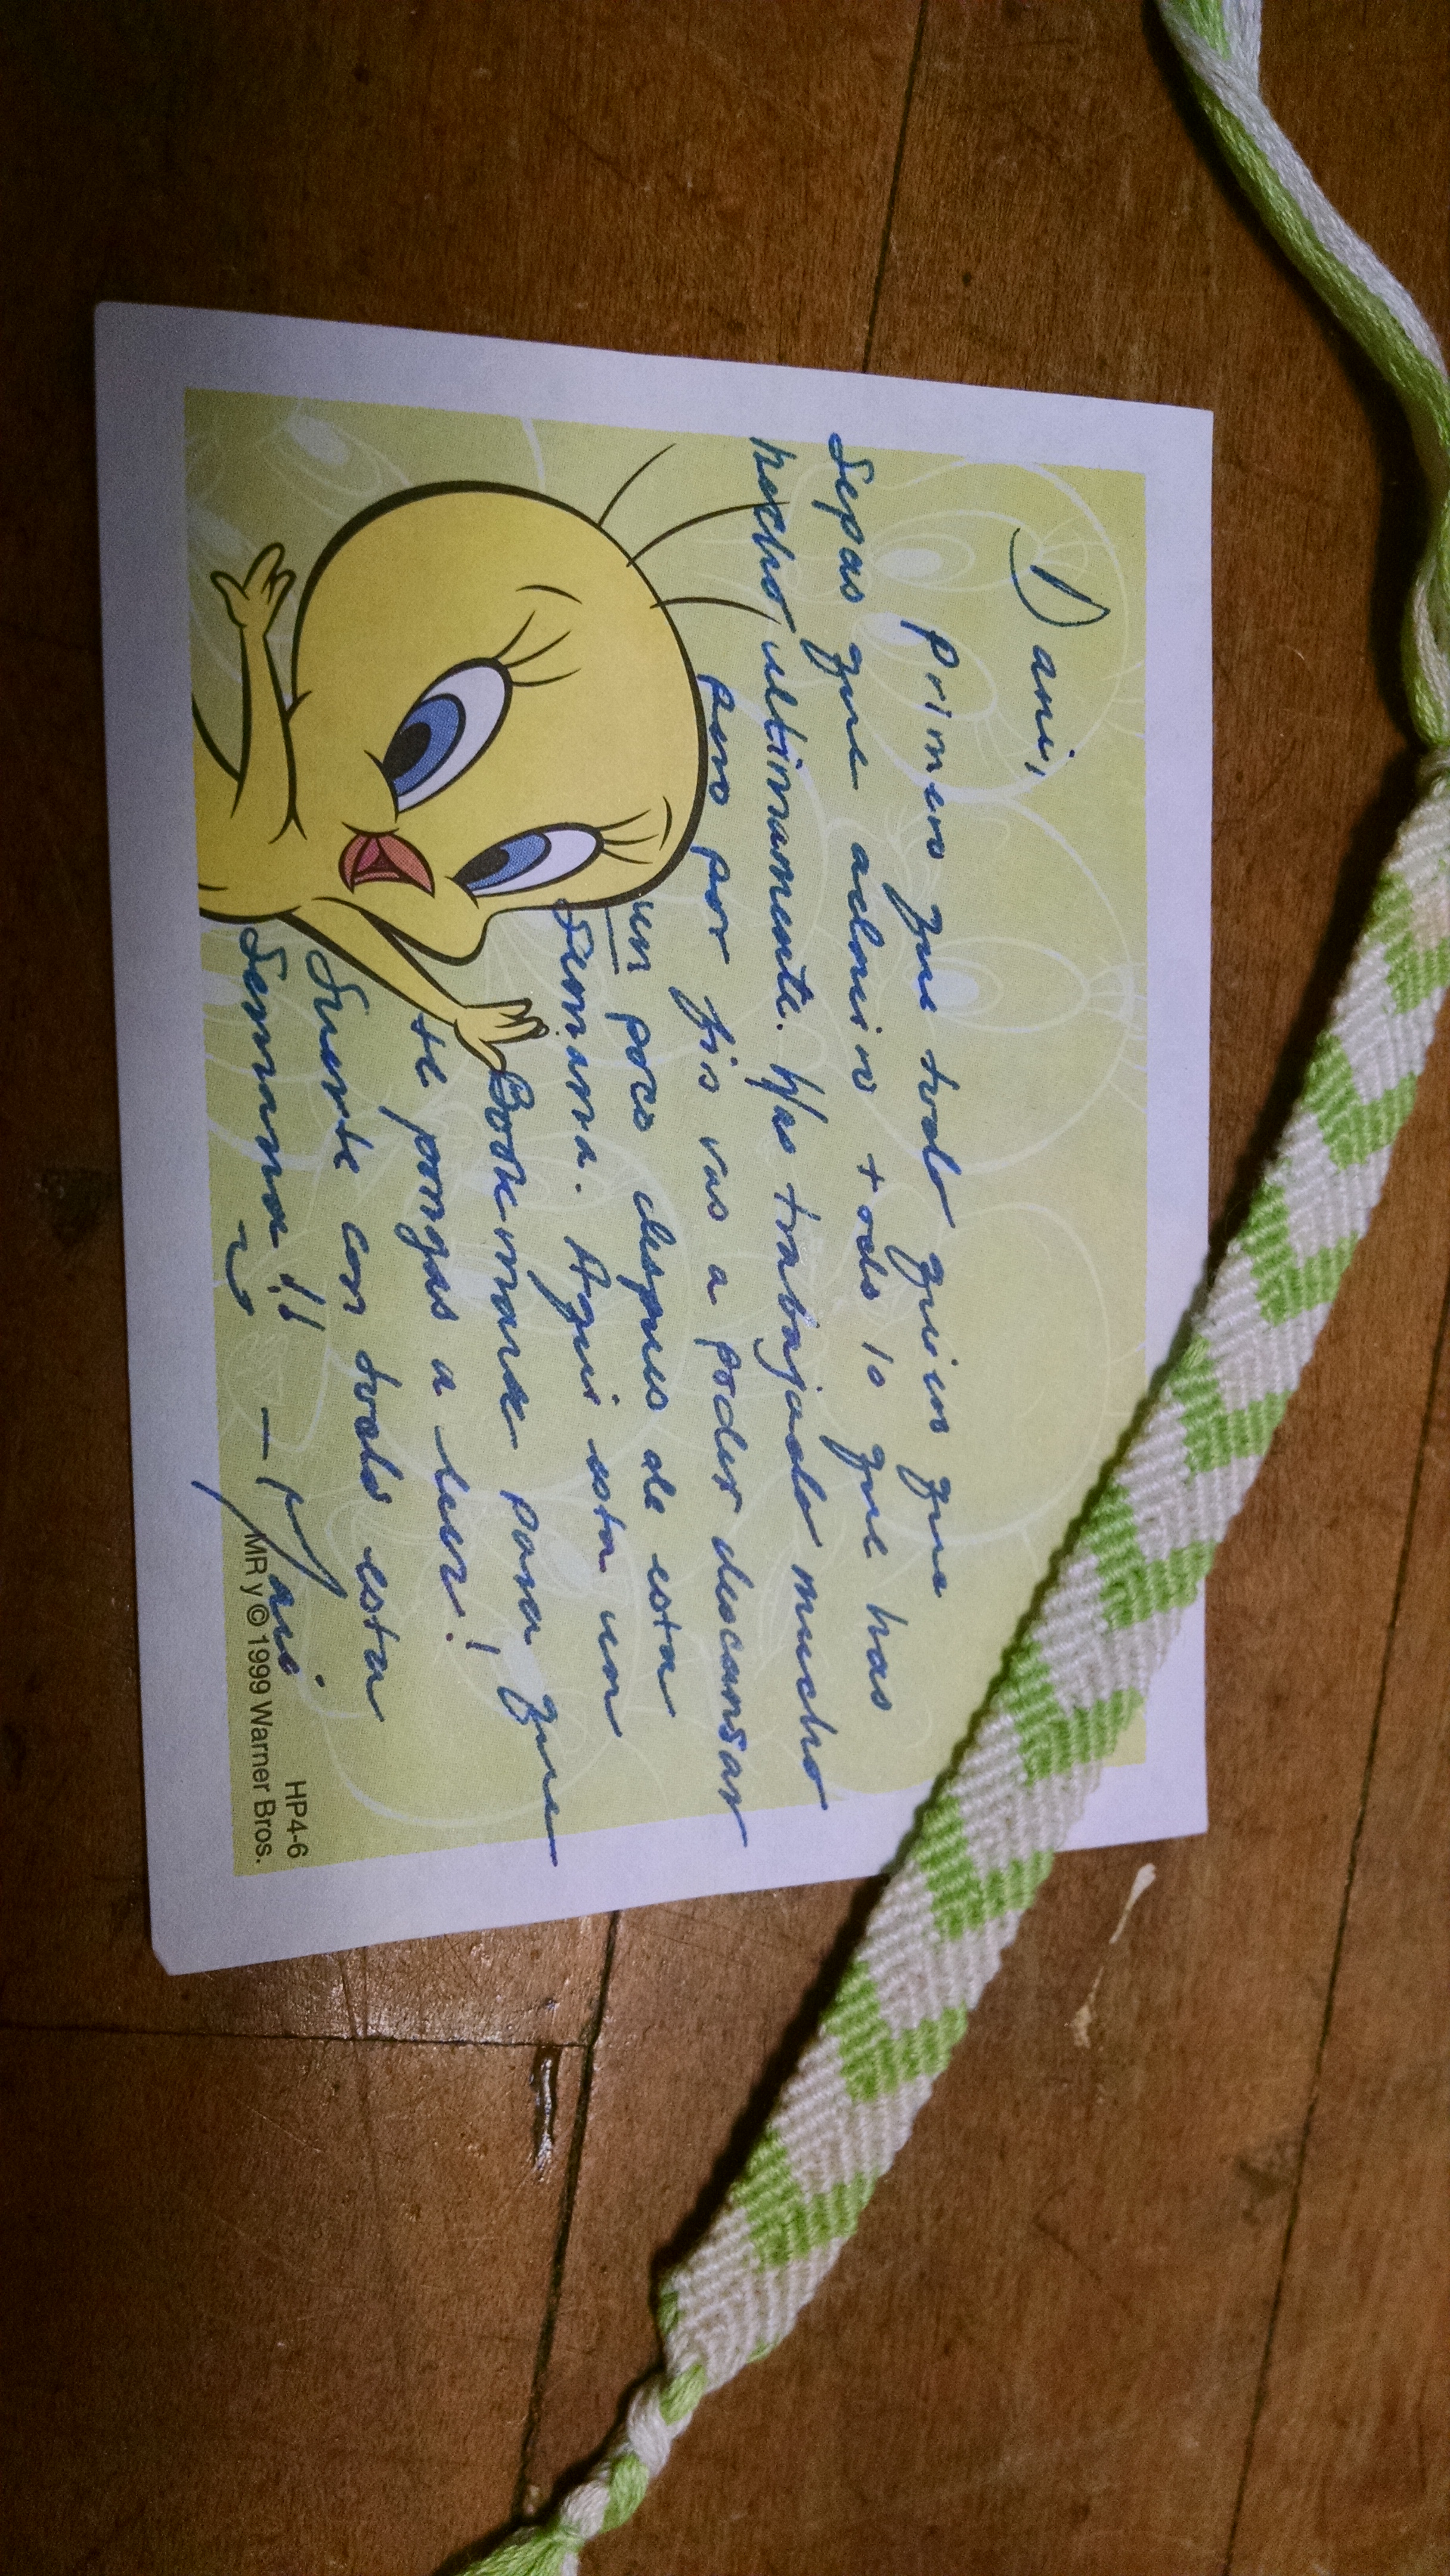 Dani,
primero que todo quiero que
sepas que admiro todo lo que has
hecho ultimamente. Has trabajado mucho
pero por fis vas a poder descansar
un poco despues de esta
semana. Aqui esta un
Bookmark para que
te pongas a leer!
Suerte con todo esta
semana!! - Yari
HP4-6
MR y © 1999 Warner Bros.